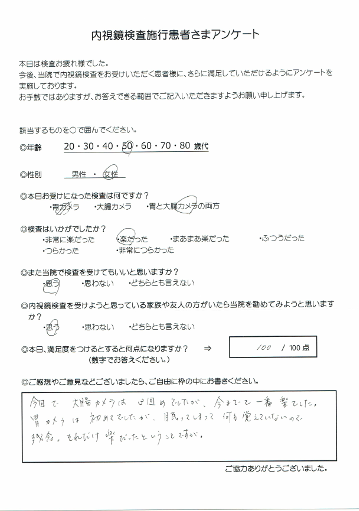 内視鏡検査施行患者さまアンケート
本日は検査お疲れ様でした。
今後、当院で内視鏡検査をお受けいただく患者様に、さらに満足していただけるようにアンケートを
実施しております。
お手数ではありますが、お答えできる範囲でご記入いただきますようお願い申し上げます。
該当するものを○で囲んでください。
◎年齢 20・30・40・50・60・70・80 歳代
◎性別 男性 ・ 女性
◎本日お受けになった検査は何ですか？
・胃カメラ ・大腸カメラ ・胃と大腸カメラの両方
◎検査はいかがでしたか？
・非常に楽だった ・楽だった ・まあまあ楽だった ・ふつうだった
・つらかった ・非常につらかった
◎また当院で検査を受けてもいいと思いますか？
・思う ・思わない ・どちらとも言えない
◎内視鏡検査を受けようと思っている家族や友人の方がいたら当院を勧めてみようと思います
か？
・思う ・思わない ・どちらとも言えない
◎本日、満足度をつけるとすると何点になりますか？ ⇒ 100 / 100 点
(数字でお答えください。)
◎ご感想やご意見などございましたら、ご自由に枠の中にお書きください。
今回で 大腸カメラは 回目でしたが、今までで一番 楽でした。
胃カメラは 初めてでしたが、眠ってしまって 何も覚えていないので
残念。それだけ 楽だったということですが。
ご協力ありがとうございました。